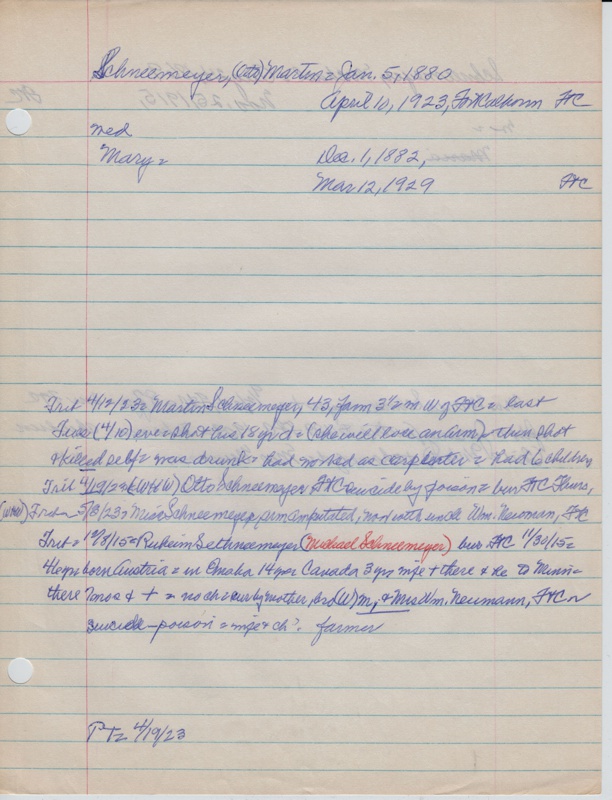 Schneemeyer, (Otto) Martin = Jan. 5, 1880
April 10, 1923, Fort Calhoun FtC
med
Mary = Dec. 1, 1882,
Mar 12, 1929 FtC
Trib 4/12/23 = Martin Schneemeyer, 43, farm 3½ m W of FtC = last
Tues (4/10) eve = shot his 18 yr d = (she will lose an arm) = then shot
& killed self = was drunk = had worked as carpenter = had 6 children
Trib 4/19/23 = (W) Otto Schneemeyer FtC suicide by poison = bur FtC Thurs,
5/3/23 = Miss Schneemeyer arm amputated, now with uncle Wm. Neuman, FtC
Trib = 12/8/15 = Schneemeyer (Michael Schneemeyer) bur FtC 11/30/15 =
41 yrs born Austria = in Omaha 14 yrs Canada 3 yrs wife + there & he to Minn =
there & + = no ch = sur by mother, bro (W) M, & Mrs Wm. Neumann, FtC
suicide - poison = wife & ch. farmer
PT = 4/19/23